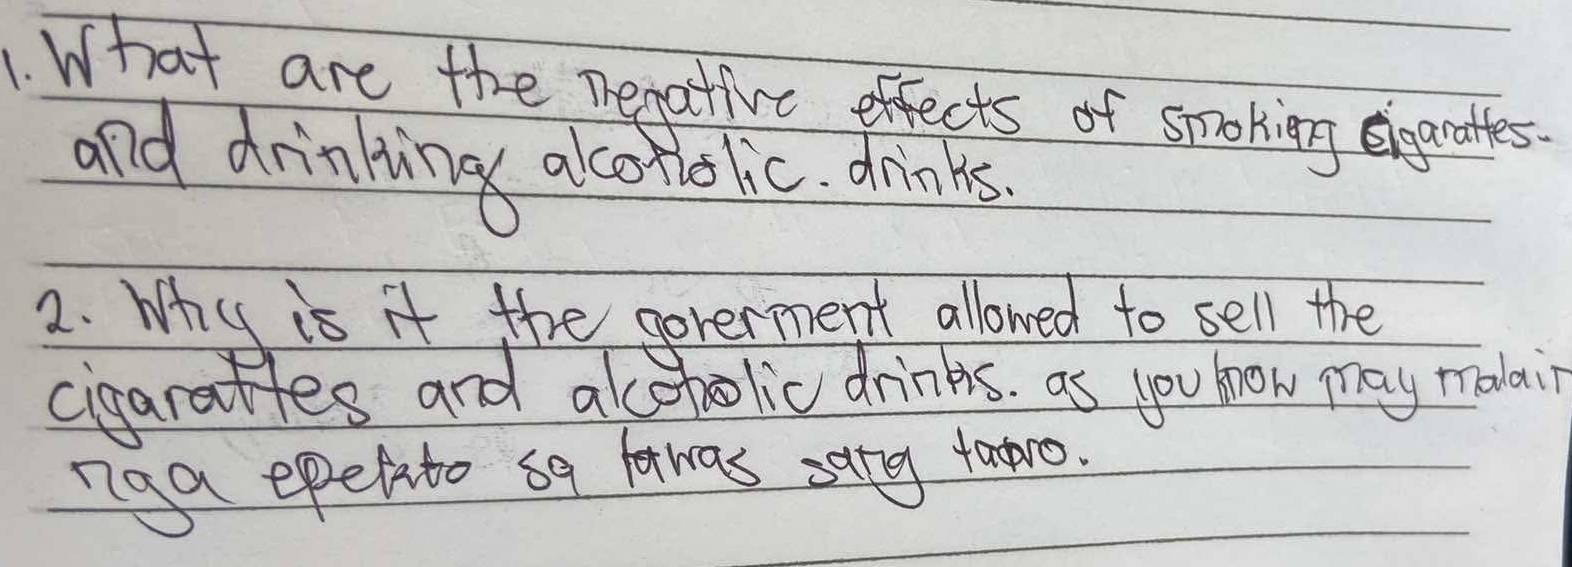 1. What are the negative effects of smoking cigarattes.
and drinking alcoholic. drinks.
2. Why is it the goverment allowed to sell the
cigarattes and alcoholic drinks. as you know may malain
nga epekto sa lawas sang tawo.